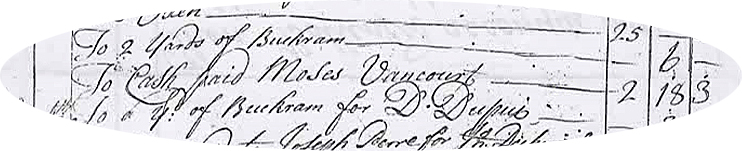 To 2 Yards of Buckram 25
6
To Cash paid Moses Vancourt 2 18 3
To a Yd. of Buckram for D. Dupui
Joseph Perre for